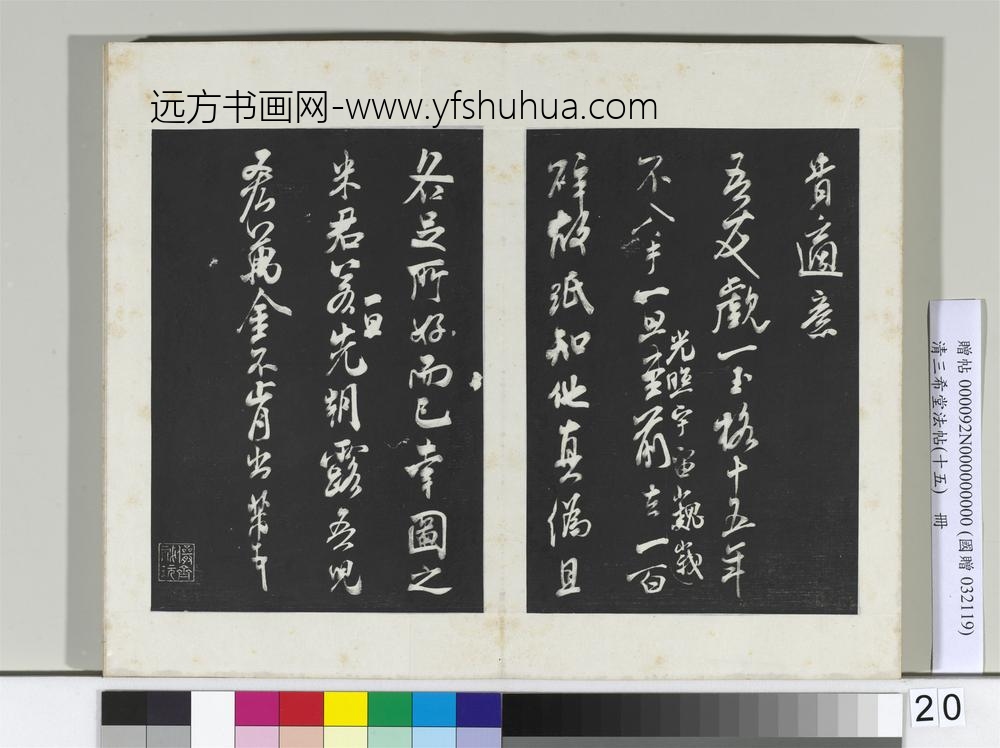 远方书画网-www.yfshuhua.com
贵適意
吾友觀一玉格十五年
不入手一旦至前
光照宇宙巍峩
去一百
碎故纸知他真偽且
各足所好而已幸圖之
米君若
一旦
先朝露吾兒
吝萬金不肯出芾書
贈帖 000092N000000000 (國贈 032119)
清三希堂法帖(十五) 冊
20